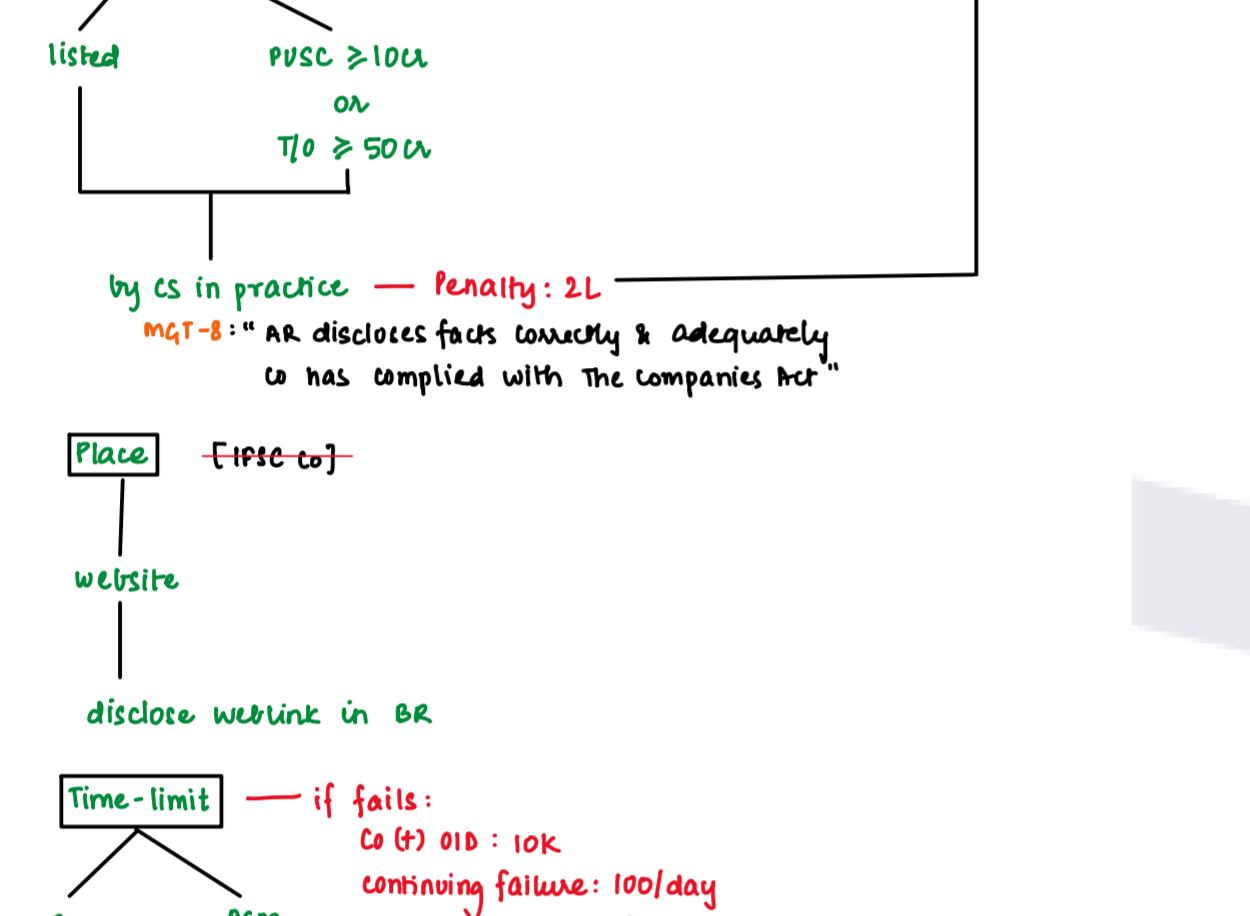 listed PUSC ≥ 10cr
or
T/O ≥ 50 cr
by CS in practice — Penalty: 2L
MGT-8: " AR discloses facts correctly & adequately
co has complied with The Companies Act "
Place [IFSC Co]
website
disclose weblink in BR
Time-limit — if fails:
Co (+) OID : 10K
continuing failure: 100/day